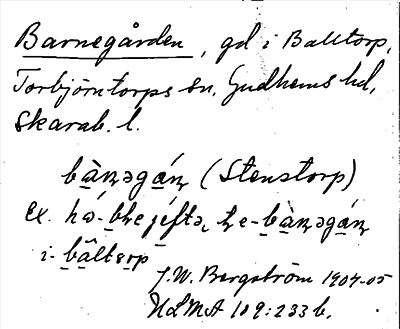 Barnegården, gd i Balltorp,
Torbjörntorps sn, Gudhems hd,
Skarab. l.
bàɳəgáɳ (Stenstorp)
Ex.
i-bâltorp
J.W. Bergström 1904-05
ULMA 109:233 b.